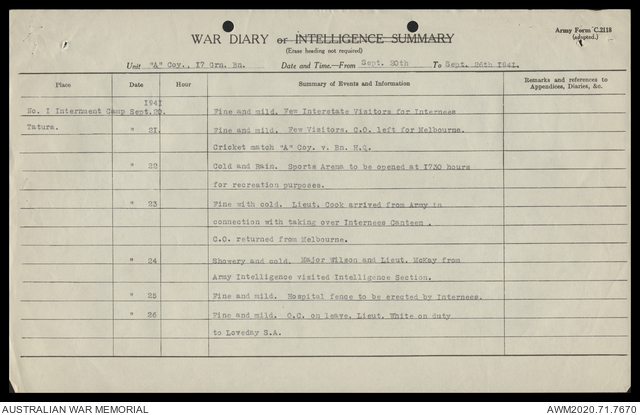 Army Form C.2118
(adapted.)
WAR DIARY or INTELLIGENCE SUMMARY
(Erase heading not required)
Unit "A" Coy., 17 Grn. Bn. Date and Time.—From Sept. 20th To Sept. 26th 1941.
Place Date Hour Summary of Events and Information Remarks and references to Appendices, Diaries, &c.
1941
No. I Internment Camp Sept. 20. Fine and mild. Few Interstate Visitors for Internees
Tatura. " 21. Fine and mild. Few Visitors. C.O. left for Melbourne.
Cricket match "A" Coy. v. Bn. H.Q.
" 22 Cold and Rain. Sports Arena to be opened at 1730 hours
for recreation purposes.
" 23 Fine with cold. Lieut. Cook arrived from Army in
connection with taking over Internees Canteen .
C.O. returned from Melbourne.
" 24 Showery and cold. Major Wilson and Lieut. McKay from
Army Intelligence visited Intelligence Section.
" 25 Fine and mild. Hospital fence to be erected by Internees.
" 26 Fine and mild. O.C. on leave. Lieut. White on duty
to Loveday S.A.
AUSTRALIAN WAR MEMORIAL AWM2020.71.7670